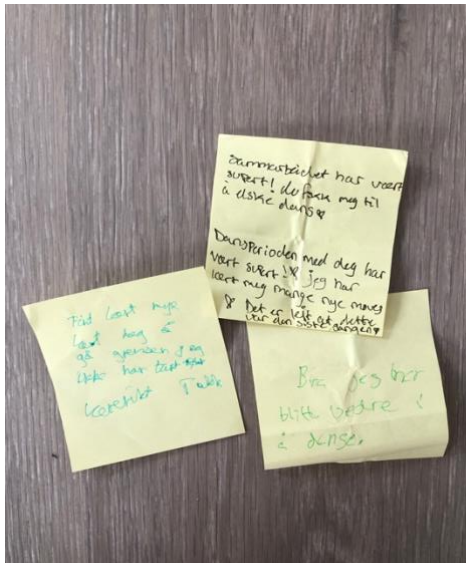 Sammarbeidet har vært
supert! du fikk meg til
å elske dans
Danseperioden med deg har
vært supert! jeg har
lært meg mange nye moves
Det er leit at dette
var den siste dangen
Fåd lært mye
gå jeg
ikke har
lærerikt Takk
Bra jeg har
blitt bedre i
å danse.